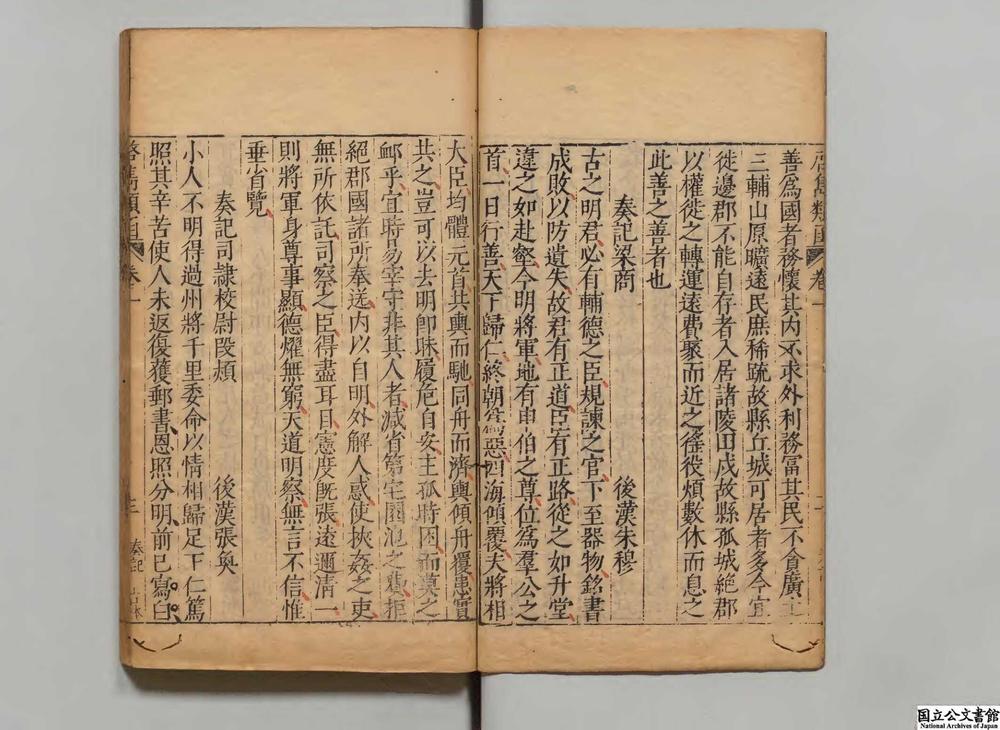 啓雋類函 卷一
善爲國者務懷其內不求外利務富其民不貪廣土
三輔山原曠遠民庶稀疏故縣丘城可居者多今宜
徙邊郡不能自存者入居諸陵田戍故縣孤城絕郡
以權徙之轉運遠費聚而近之徭役煩數休而息之
此善之善者也
奏記梁商 後漢朱穆
古之明君必有輔德之臣規諫之官下至器物銘書
成敗以防遺失故君有正道臣有正路從之如升堂
違之如赴壑今明將軍地有申伯之尊位爲羣公之
首一日行善天下歸仁終朝爲惡四海傾覆夫將相
大臣均體元首共輿而馳同舟而濟輿傾舟覆患實
共之豈可以去明卽昧履危自安主孤時困而莫之
卹乎宜時易宰守非其人者減省第宅園池之費拒
絕郡國諸所奉送內以自明外解人惑使挾姦之吏
無所依託司察之臣得盡耳目憲度旣張遠邇清一
則將軍身尊事顯德燿無窮天道明察無言不信惟
垂省覽
奏記司隷校尉段熲 後漢張奐
小人不明得過州將千里委命以情相歸足下仁篤
照其辛苦使人未返復獲郵書恩照分明前已寫白
啓雋類函 卷一 三 奏記 古體